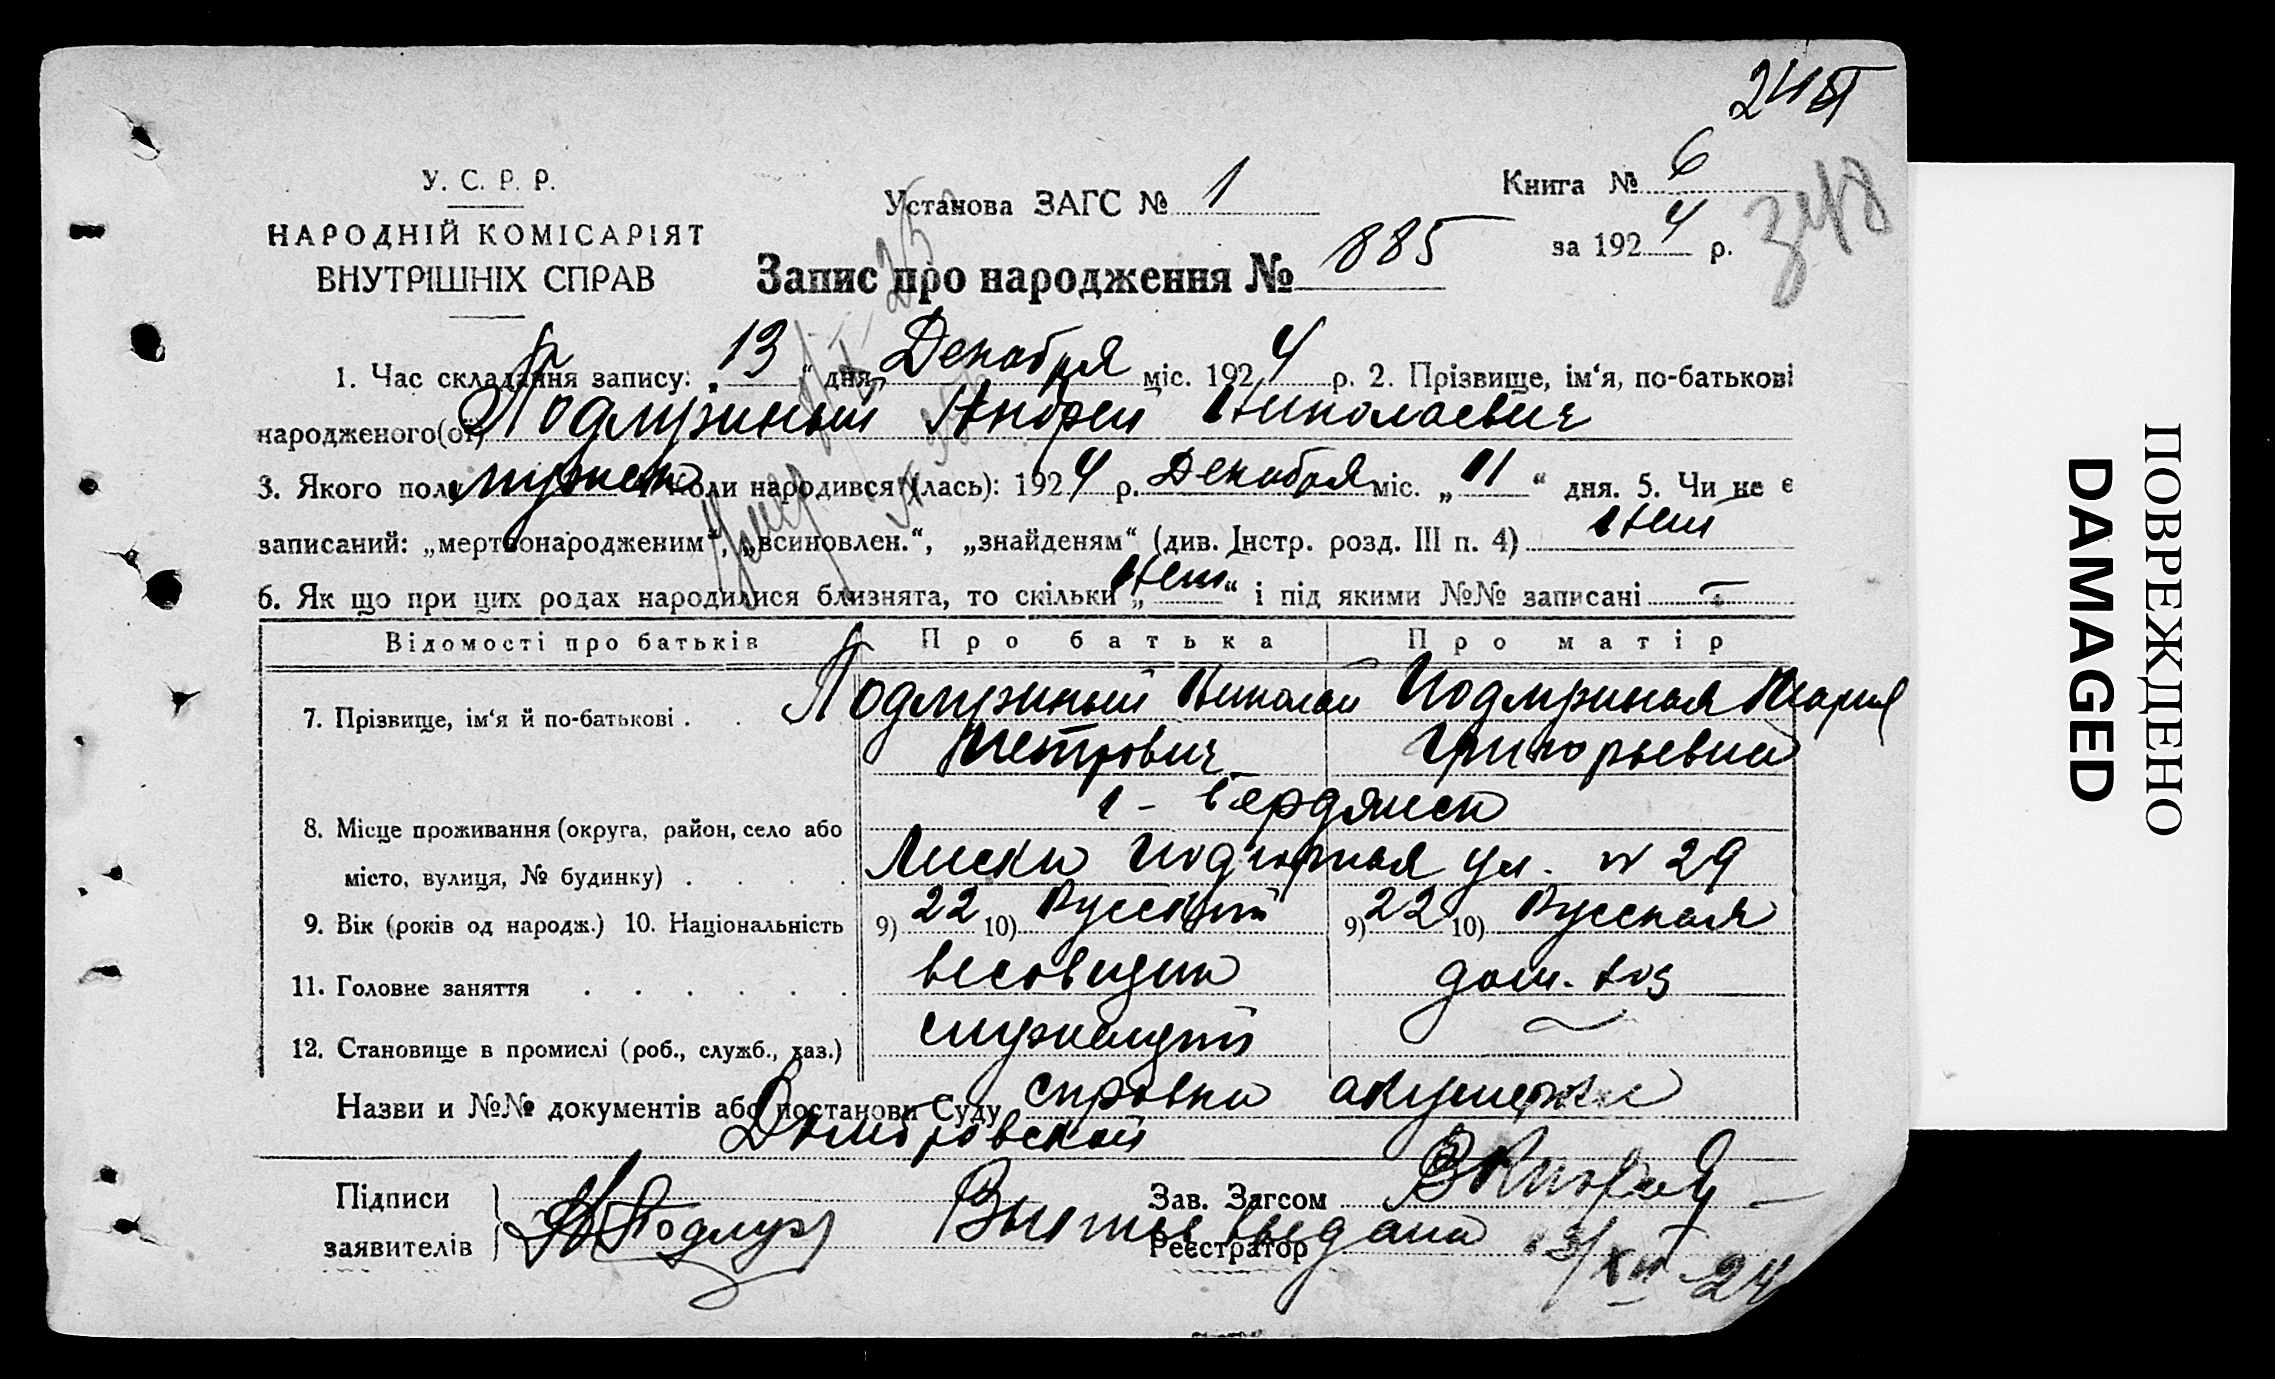 24
348
У. С. Р. Р.
НАРОДНІЙ КОМІСАРІЯТ
ВНУТРІШНІХ СПРАВ
Установа ЗАГС № 1
Книга № 6
за 1924 р.
Запис про народження № 885
1. Час складання запису: „13“ дня Декабря міс. 1924 р. 2. Прізвище, ім‘я, по-батькові
народженого(ої) Подлужный Андрей Николаевич
3. Якого полу мужск 4. Коли народився (лась): 1924 р. Декабря міс. „11“ дня. 5. Чи не є
записаний: „мертвонародженим“, „всиновлен.“, „знайденям“ (див. Інстр. розд. III п. 4) Нет
6. Як що при цих родах народилися близнята, то скільки „Нет“ і під якими №№ записані —
Відомості про батьків Про батька Про матір
7. Прізвище, ім‘я й по-батькові . . Подлужный Николай Подлужная Мария
Петрович Григорьевна
г. Бердянск
8. Місце проживання (округа, район, село або
місто, вулиця, № будинку) . . . . Лиски Подгорная ул. № 29
9. Вік (років од народж.) 10. Національність 9) 22 10) Русский 9) 22 10) Русская
11. Головне заняття . . . . . . весовщик дом. хоз
12. Становище в промислі (роб., служб., хаз.) служащий —
Назви и №№ документів або постанови Суду справка акушерки
Домбровской
Підписи
заявителів
Н Подлуж
Зав. Загсом
Реєстратор
Выпись выдана 13/XII-24
Умер
ПОВРЕЖДЕНО
DAMAGED